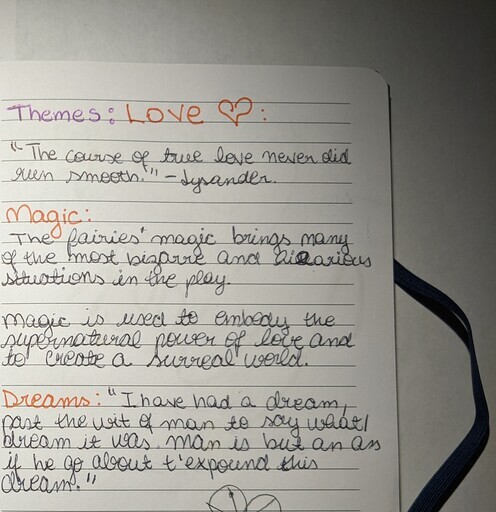 Themes: Love ♡:
"The course of true love never did
run smooth." - Lysander.
Magic:
The fairies' magic brings many
of the most bizarre and hilarious
situations in the play.
Magic is used to embody the
supernatural power of love and
to create a surreal world.
Dreams: "I have had a dream,
past the wit of man to say what I
dream it was. Man is but an ass
if he go about t'expound this
dream."